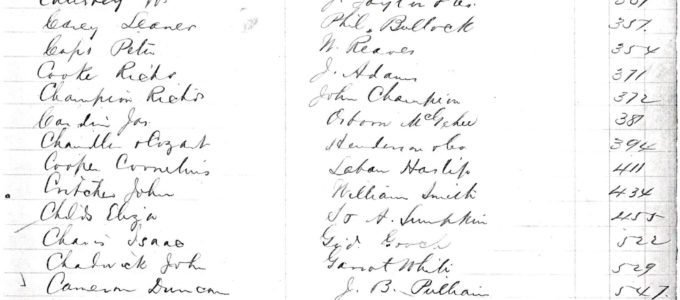 Carey Leaner Phil. Bullock 357.
Caps Peter W. Reaves 354
Cooke Richd J. Adams 371
Champion Richd John Champion 372
Cardin Jas Osborn McGehee 381
Chandler & Cozart Henderson & Co 394
Cooper Cornelius Laban Haslip 411
Critcher John William Smith 434
Childs Eliza A. Lumpkin 455
Chavis Isaac Gid. Gooch 522
Chadwick John Garrot White 529
Cameron Duncan J. B. Pulliam 547.